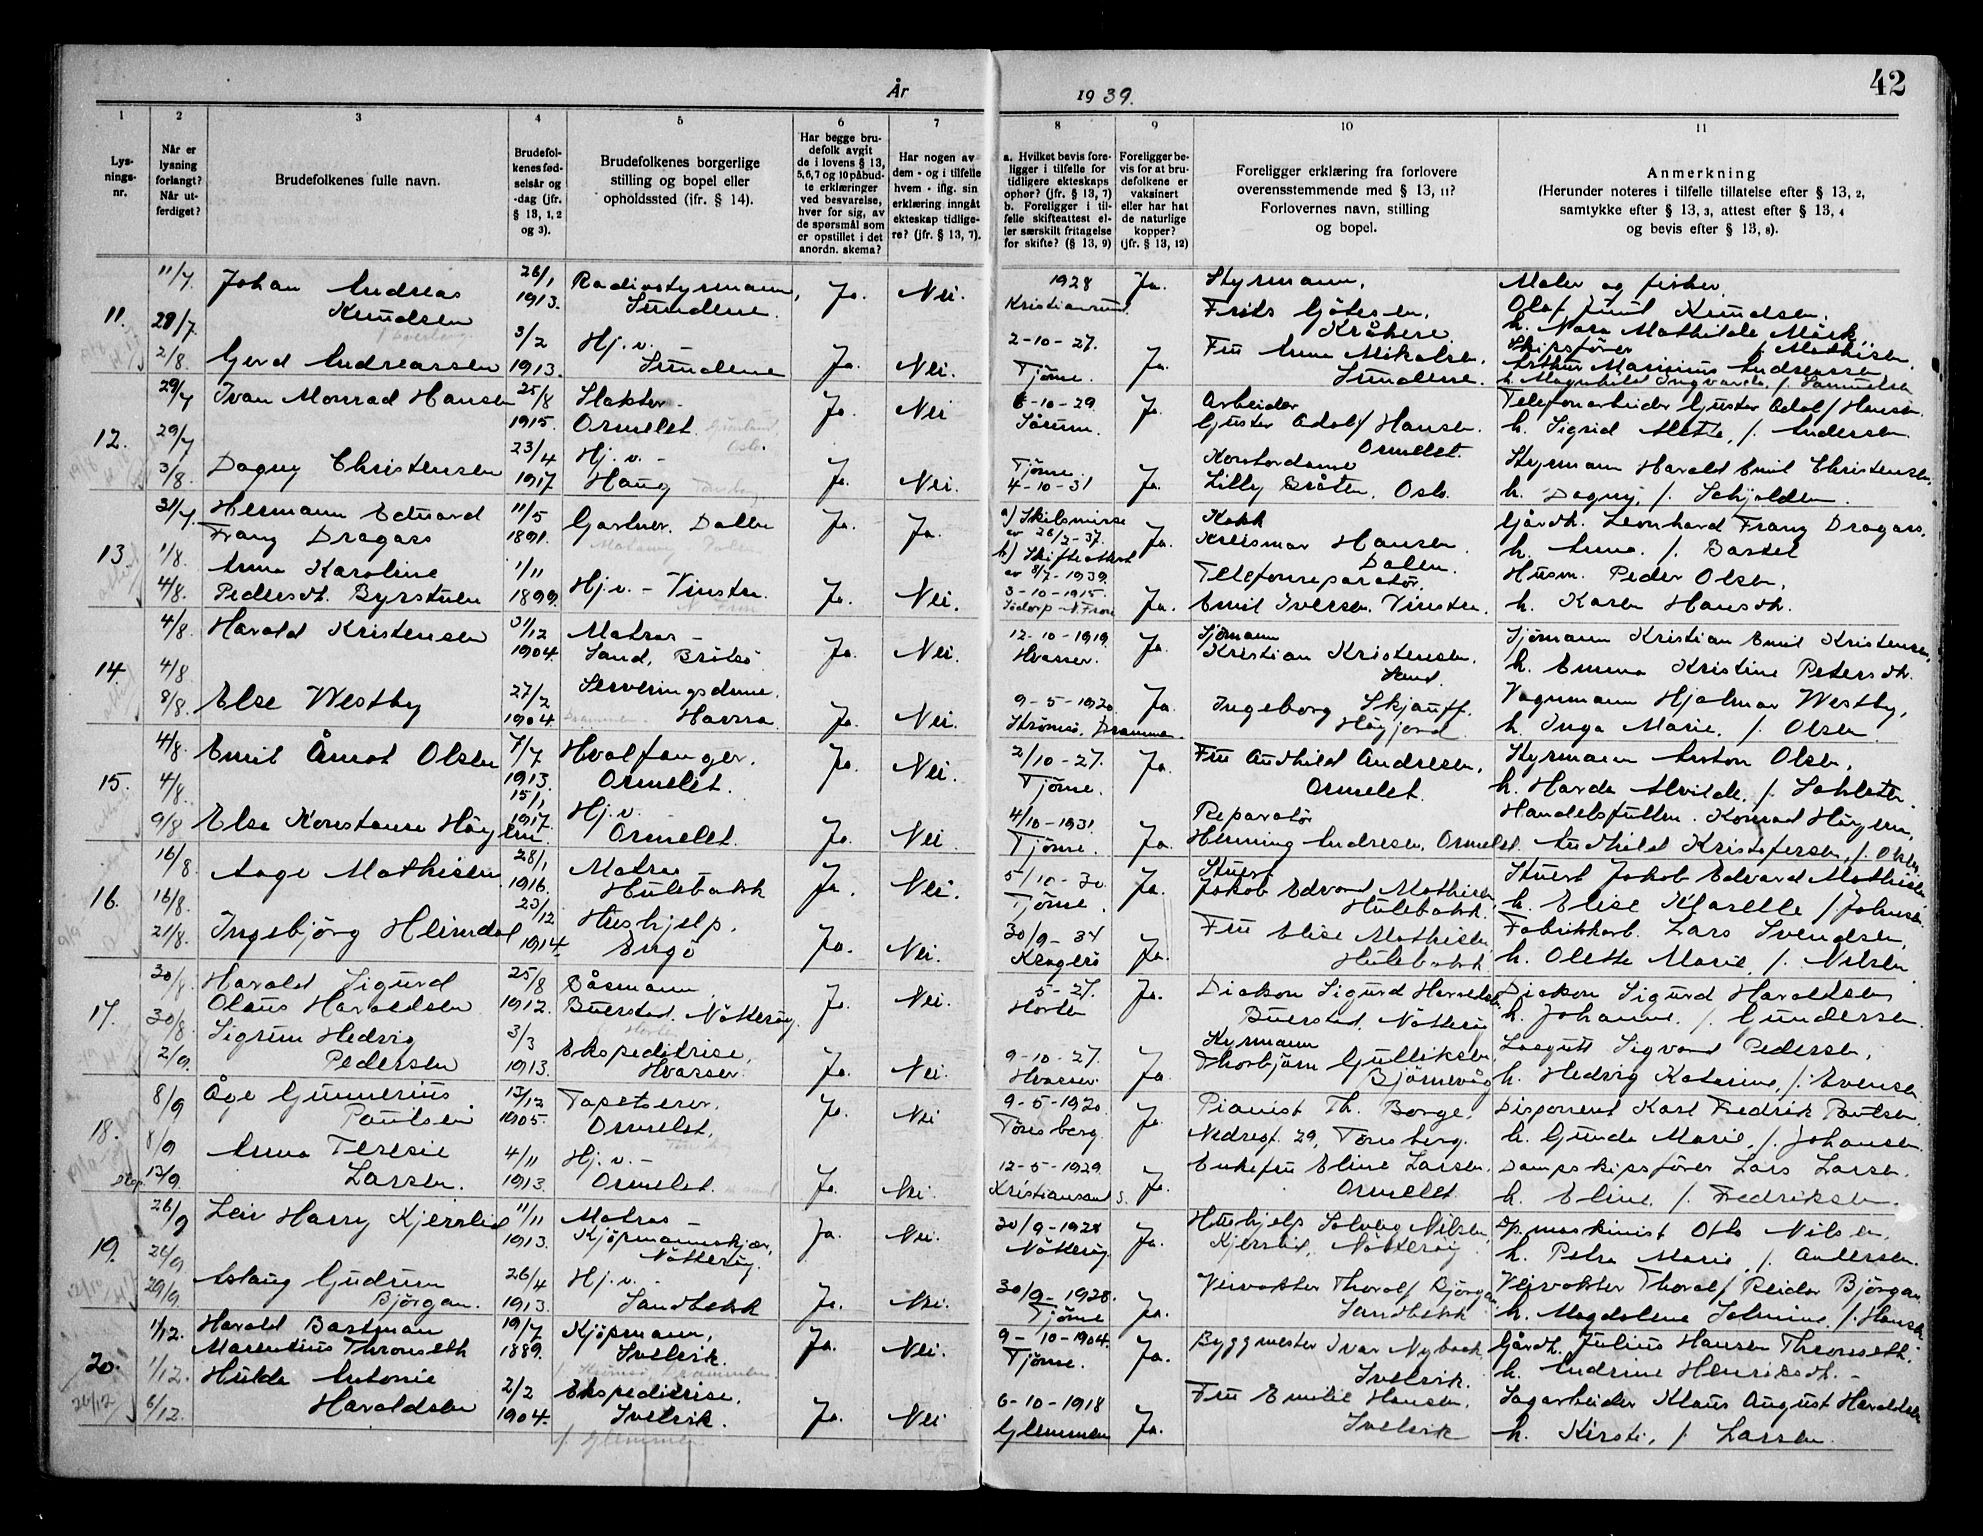 År 1939.
42
1 2 3 4 5 6 7 8 9 10 11
Lys-
nings-
nr.
Når er
lysning
forlangt?
Når ut-
ferdiget?
Brudefolkenes fulle navn.
Brudefol-
kenes fød-
selsår og
-dag (jfr.
§ 13, 1, 2
og 3).
Brudefolkenes borgerlige
stilling og bopel eller
opholdssted (ifr. § 14).
Har begge bru-
defolk avgit
de i lovens § 13,
5,6,7 og 10 påbud-
te erklæringer
ved besvarelse,
hver for sig, av
de spørsmål som
er opstillet i det
anordn. skema?
Har nogen av
dem - og i tilfelle
hvem - iflg. sin
erklæring inngåt
ekteskap tidlige-
re? (jfr. § 13, 7).
a. Hvilket bevis fore-
ligger i tilfelle for
tidligere ekteskaps
ophør? (jfr. § 13, 7)
b. Foreligger i til-
felle skifteattest el-
ler særskilt fritagelse
for skifte? (§ 13, 9)
Foreligger be-
vis for at bru-
defolkene er
vaksinert
eller har hat
de naturlige
kopper?
(jfr. § 13, 12)
Foreligger erklæring fra forlovere
overensstemmende med § 13, 11?
Forlovernes navn, stilling
og bopel.
Anmerkning
(Herunder noteres i tilfelle tillatelse efter § 13, 2,
samtykke efter § 13, 3, attest efter § 13, 4
og bevis efter § 13, 8).
11.
11/7
28/7.
2/8
Johan Andreas
Knudsen
26/1
1913.
Radiostyrmann,
Sundene.
Ja. Nei.
1928
Kristiansund
Ja.
Styrmann,
Frits Götesen,
Kråkere
Maler og fisker
Olaf Juul Knudsen,
h. Nora Mathilde Mörk
Gerd Andreassen
3/2
1913.
Hj.v.
Sundene
Ja. Nei.
2-10-27.
Tjøme.
Ja.
Fru Anna Mikalsen,
Sundene.
Skipsfører f. Mathisen.
Arthur Marinius Andreassen
h. Magnhild Ingvarda, f. Samuelsen
12.
29/7
29/7
3/8
Ivan Monrad Hansen
25/8
1915.
Slakter -
Ormelet.
Ja. Nei
6-10-29
Sörum.
Ja.
Arbeider
Gustav Adolf Hansen.
Ormelet.
Telefonarbeider Gustav Adolf Hansen.
h. Sigrid Alette, f. Andersen.
Dagny Christensen
23/4
1917.
Hj.v. -
Haug
Ja. Nei.
Tjøme.
4-10-31
Ja.
Kontordame
Lilly Bråten, Oslo.
Styrmann Harald Emil Christensen,
h. Dagny, f. Schjolden.
13.
31/7.
1/8.
4/8.
Hermann Eduard
Franz Dragass
11/5
1891.
Gartner. Dalen
Ja. Ja.
a) Skilsmisse
av 26/2-37.
b) Skifteattest
av 8/7-1939.
Ja.
Kokk
Kreismar Hansen.
Dalen.
Gårdb. Leonhard Franz Dragass,
h. Anna. f. Bastel
Anna Karoline
Pedersdt. Byrstuen
1/11
1899.
Hj.v. - Vinstra.
N. Fron
Ja. Nei.
3-10-1915.
Södorp - N. Fron
Ja.
Telefonreparatør.
Emil Iversen, Vinstra.
Husm. Peder Olsen,
h. Karen Hansdt.
14.
4/8.
4/8
8/8.
Harald Kristensen
31/12
1904.
Matros -
Sand, Brötsö
Ja. Nei.
12-10-1919.
Hvasser.
Ja.
Sjømann
Kristian Kristensen.
Sand.
Sjømann Kristian Emil Kristensen,
h. Emma Kristine Petersdt.
Else Westby
27/2
1904
Serveringsdame.
Drammen. Havna
Ja. Nei.
9-5-1920
Strömsö, Drammen
Ja.
Ingeborg Skjauff.
Høyjord.
Vognmann Hjalmar Westby,
h. Inga Marie, f. Olsen.
15.
4/8.
4/8.
9/8
Emil Årnot Olsen
7/7
1913.
Hvalfanger,
Ormelet.
Ja. Nei.
2/10-27.
Tjøme.
Ja.
Fru Audhild Andresen,
Ormelet.
Styrmann Anton Olsen,
h. Harda Alvilde, f.
Else Konstanse Høyem.
15/1
1917.
Hj.v.
Ormelet.
Ja. Nei.
4/10-1931
Tjøme.
Ja.
Reparatør
Henning Andresen, Ormelet.
Handelsfullm. Konrad Høyem,
h. Audhild Kristofersen, f. Olsen
16.
16/8.
16/8.
21/8.
Aage Mathisen
28/1
1916.
Matros
Hulebakk
Ja. Nei.
5/10-30
Tjøme.
Ja.
Stuert
Jakob Edvard Mathisen
Hulebakk.
Stuert Jakob Edvard Mathisen
h. Elise Marelle f. Johnsen
Ingebjörg Heimdal
23/12
1914.
Hushjelp,
Engö
Ja. Nei.
30/9-34
Kragerö
Ja.
Fru Elise Mathisen
Hulebakk
Fabrikkarb. Lars Svendsen,
h. Olette Marie, f. Nilsen
17.
30/8.
30/8.
2/9.
Harald Sigurd
Olaus Haraldsen
25/8
1912.
Båsmann,
Buerstad, Nötteröy.
Horten
Ja. Nei.
5-27.
Horten
Ja.
Diakon Sigurd Haraldsen
Buerstad, Nötteröy
Diakon Sigurd Haraldsen
h. Johanne, f. Gundersen.
Sigrun Hedvig
Pedersen
3/3
1913.
Ekspeditrise,
Hvasser.
Ja. Nei.
9-10-27.
Hvasser
Ja
Styrmann
Thorbjørn Gulliksen
Bjørnevåg
Losgutt Sigvard Pedersen,
h. Hedvig Katarine, f. Evensen.
18.
8/9
8/9
13/9.
Åge Gunnerius
Paulsen
13/12
1905.
Tapetserer.
Ormelet,
Ja. Nei
9-5-1920.
Tønsberg.
Ja.
Pianist Th. Borge,
Nedregt. 29, Tønsberg.
Disponent Karl Fredrik Paulsen.
h. Gunda Marie, f. Johansen.
Anna Teresie
Larsen.
4/11
1913.
Hj.v. -
Ormelet.
Ja. Nei.
12-5-1929.
Kristiansand S.
Ja.
Enkefru Eline Larsen.
Ormelet.
Dampskipsfører Lars Larsen.
h. Eline, f. Fredriksen.
19.
26/9
26/9
29/9.
Leiv Harry Kjerrlid
11/11
1913.
Matros -
Kjöpmannskjær,
Nötteröy.
Ja. Nei.
30/9-1928
Nötteröy.
Ja.
Hushjelp Solveig Nilsen,
Kjerrlid, Nötteröy.
Dp.maskinist Otto Nilsen.
h. Petra Marie, f. Andersen.
Aslaug Gudrun
Björgan.
26/4
1913.
Hj.v.
Sandbakk
Ja. Nei.
30/9-1928.
Tjøme
Ja.
Veivokter Thoralf Bjørgan
Sandbakk
Veivokter Thoralf Reidar Björgan
h. Magdalene Jolmine, f. Hansen
20.
1/12.
1/12.
6/12.
Harald Bastman
Marentius Thronseth
19/7
1889.
Kjøpmann,
Svelvik.
Ja. Nei.
9-10-1904.
Tjøme.
Ja.
Byggmester Ivar Nybakk,
Svelvik.
Gårdb. Julius Hansen Thronseth.
h. Andrine Henriksdt. -
Hulda Antonie
Haraldsen
2/2
1904.
Ekspeditrise,
Svelvik.
f. Glemmen
Ja. Nei
6-10-1918
Glemmen
Ja.
Fru Emilie Hansen,
Svelvik
Sagarbeider Klaus August Haraldsen
h. Kirsti, f. Larsen.
26/12